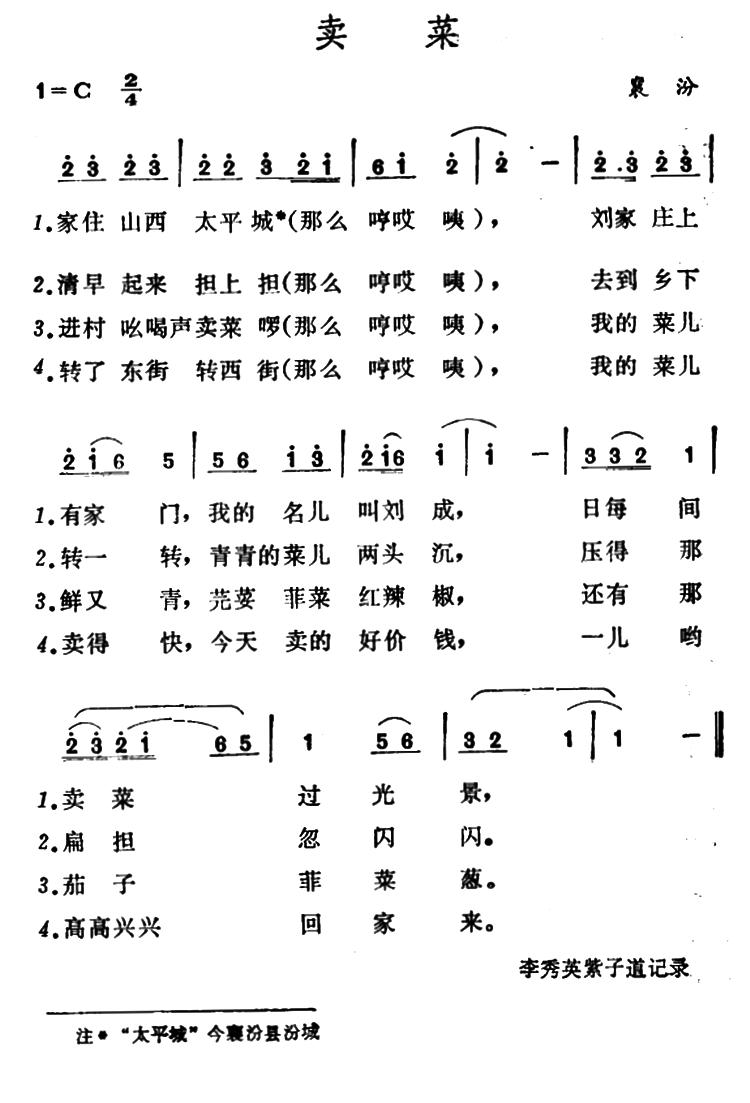 卖 菜
1=C 2/4 襄 汾
2̇ 3̇ 2̇ 3̇ | 2̇ 2̇ 3̇ 2̇ 1̇ | 6 1̇ 2̇ | 2̇ － | 2̇ . 3̇ 2̇ 3̇ |
1.家住 山西 太平 城*(那么 哼哎 咦)， 刘家 庄上
2.清早 起来 担上 担(那么 哼哎 咦)， 去到 乡下
3.进村 吆喝声卖菜 啰(那么 哼哎 咦)， 我的 菜儿
4.转了 东街 转西 街(那么 哼哎 咦)， 我的 菜儿
2̇ 1̇ 6 5 | 5 6 1̇ 3̇ | 2̇ 1̇ 6 1̇ | 1̇ － | 3 3 2 1 |
1.有家 门，我的 名儿 叫刘 成， 日每 间
2.转一 转，青青的菜儿 两头 沉， 压得 那
3.鲜又 青，芫荽 菲菜 红辣 椒， 还有 那
4.卖得 快，今天 卖的 好价 钱， 一儿 哟
2̇ 3̇ 2̇ 1̇ 6 5 | 1 5 6 | 3 2 1 | 1 － ‖
1.卖菜 过 光 景，
2.扁担 忽 闪 闪。
3.茄子 菲 菜 葱。
4.高高兴兴 回 家 来。
李秀英紫子道记录
注* “太平城”今襄汾县汾城